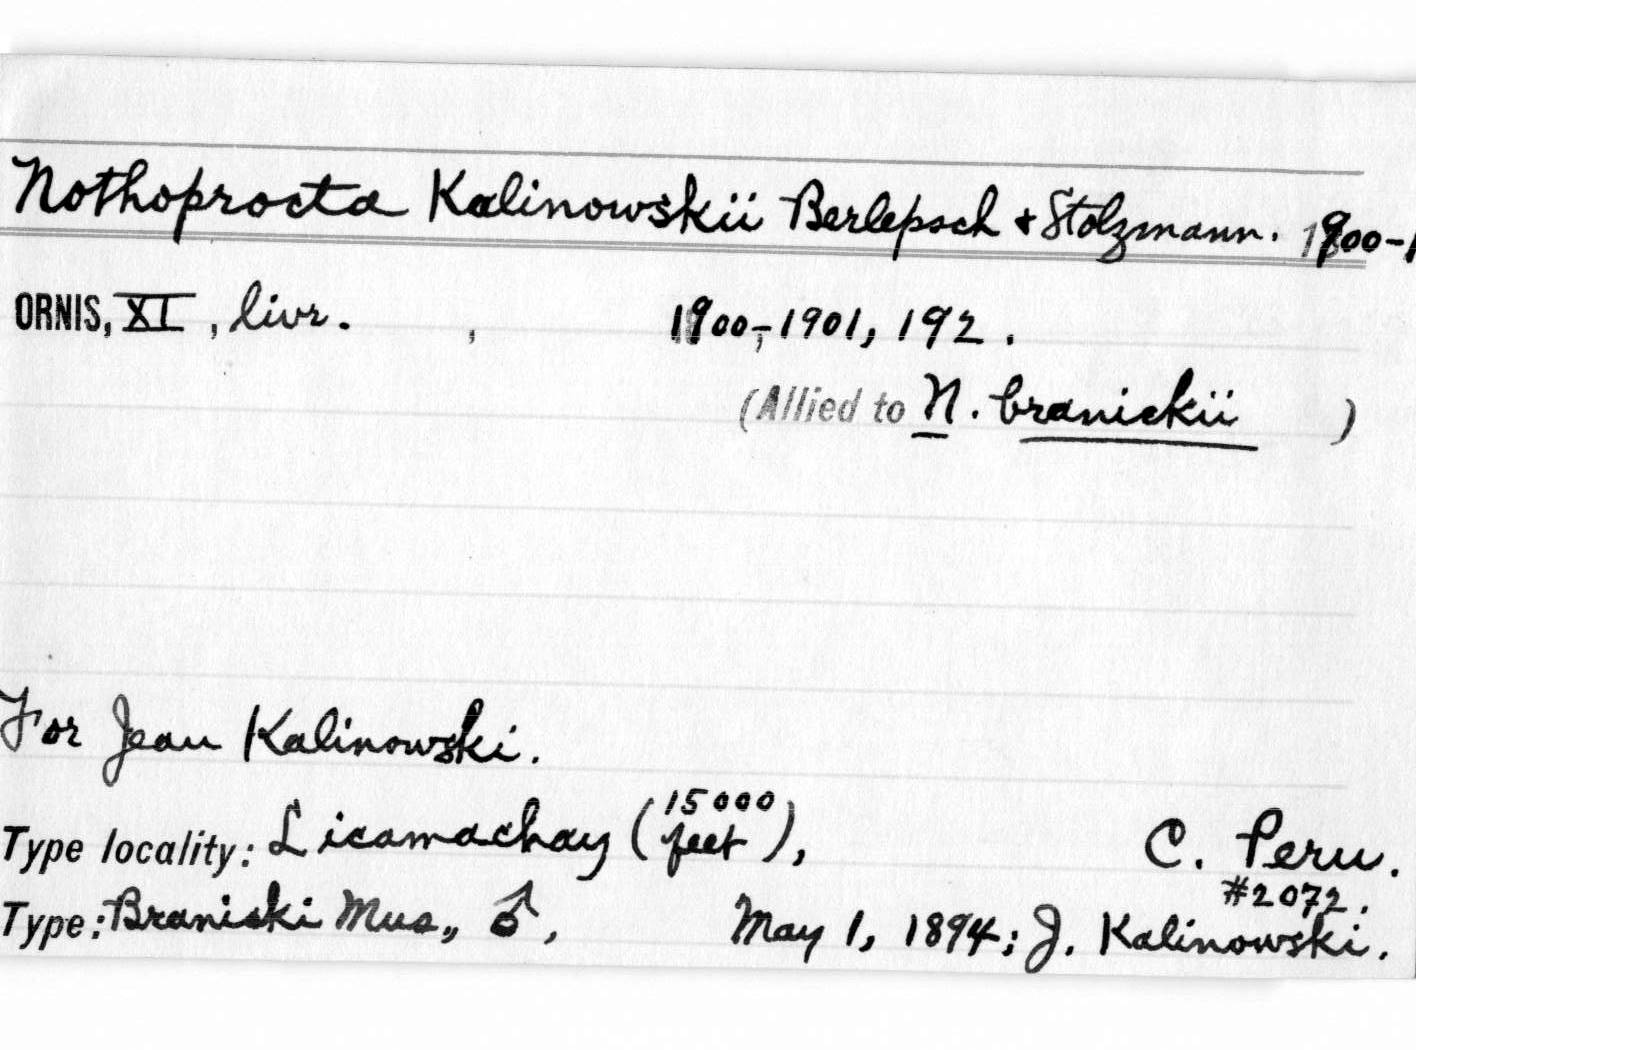 Nothoprocta Kalinowskii Berlepsch & Stolzmann. 1900-1
ORNIS, XI, livr. , 1900-1901, 192.
(Allied to N. branickii )
For Jean Kalinowski.
Type locality: Licamachay (15000 feet), C. Peru.
#2072.
Type: Braniski Mus., ♂, May 1, 1894; J. Kalinowski.